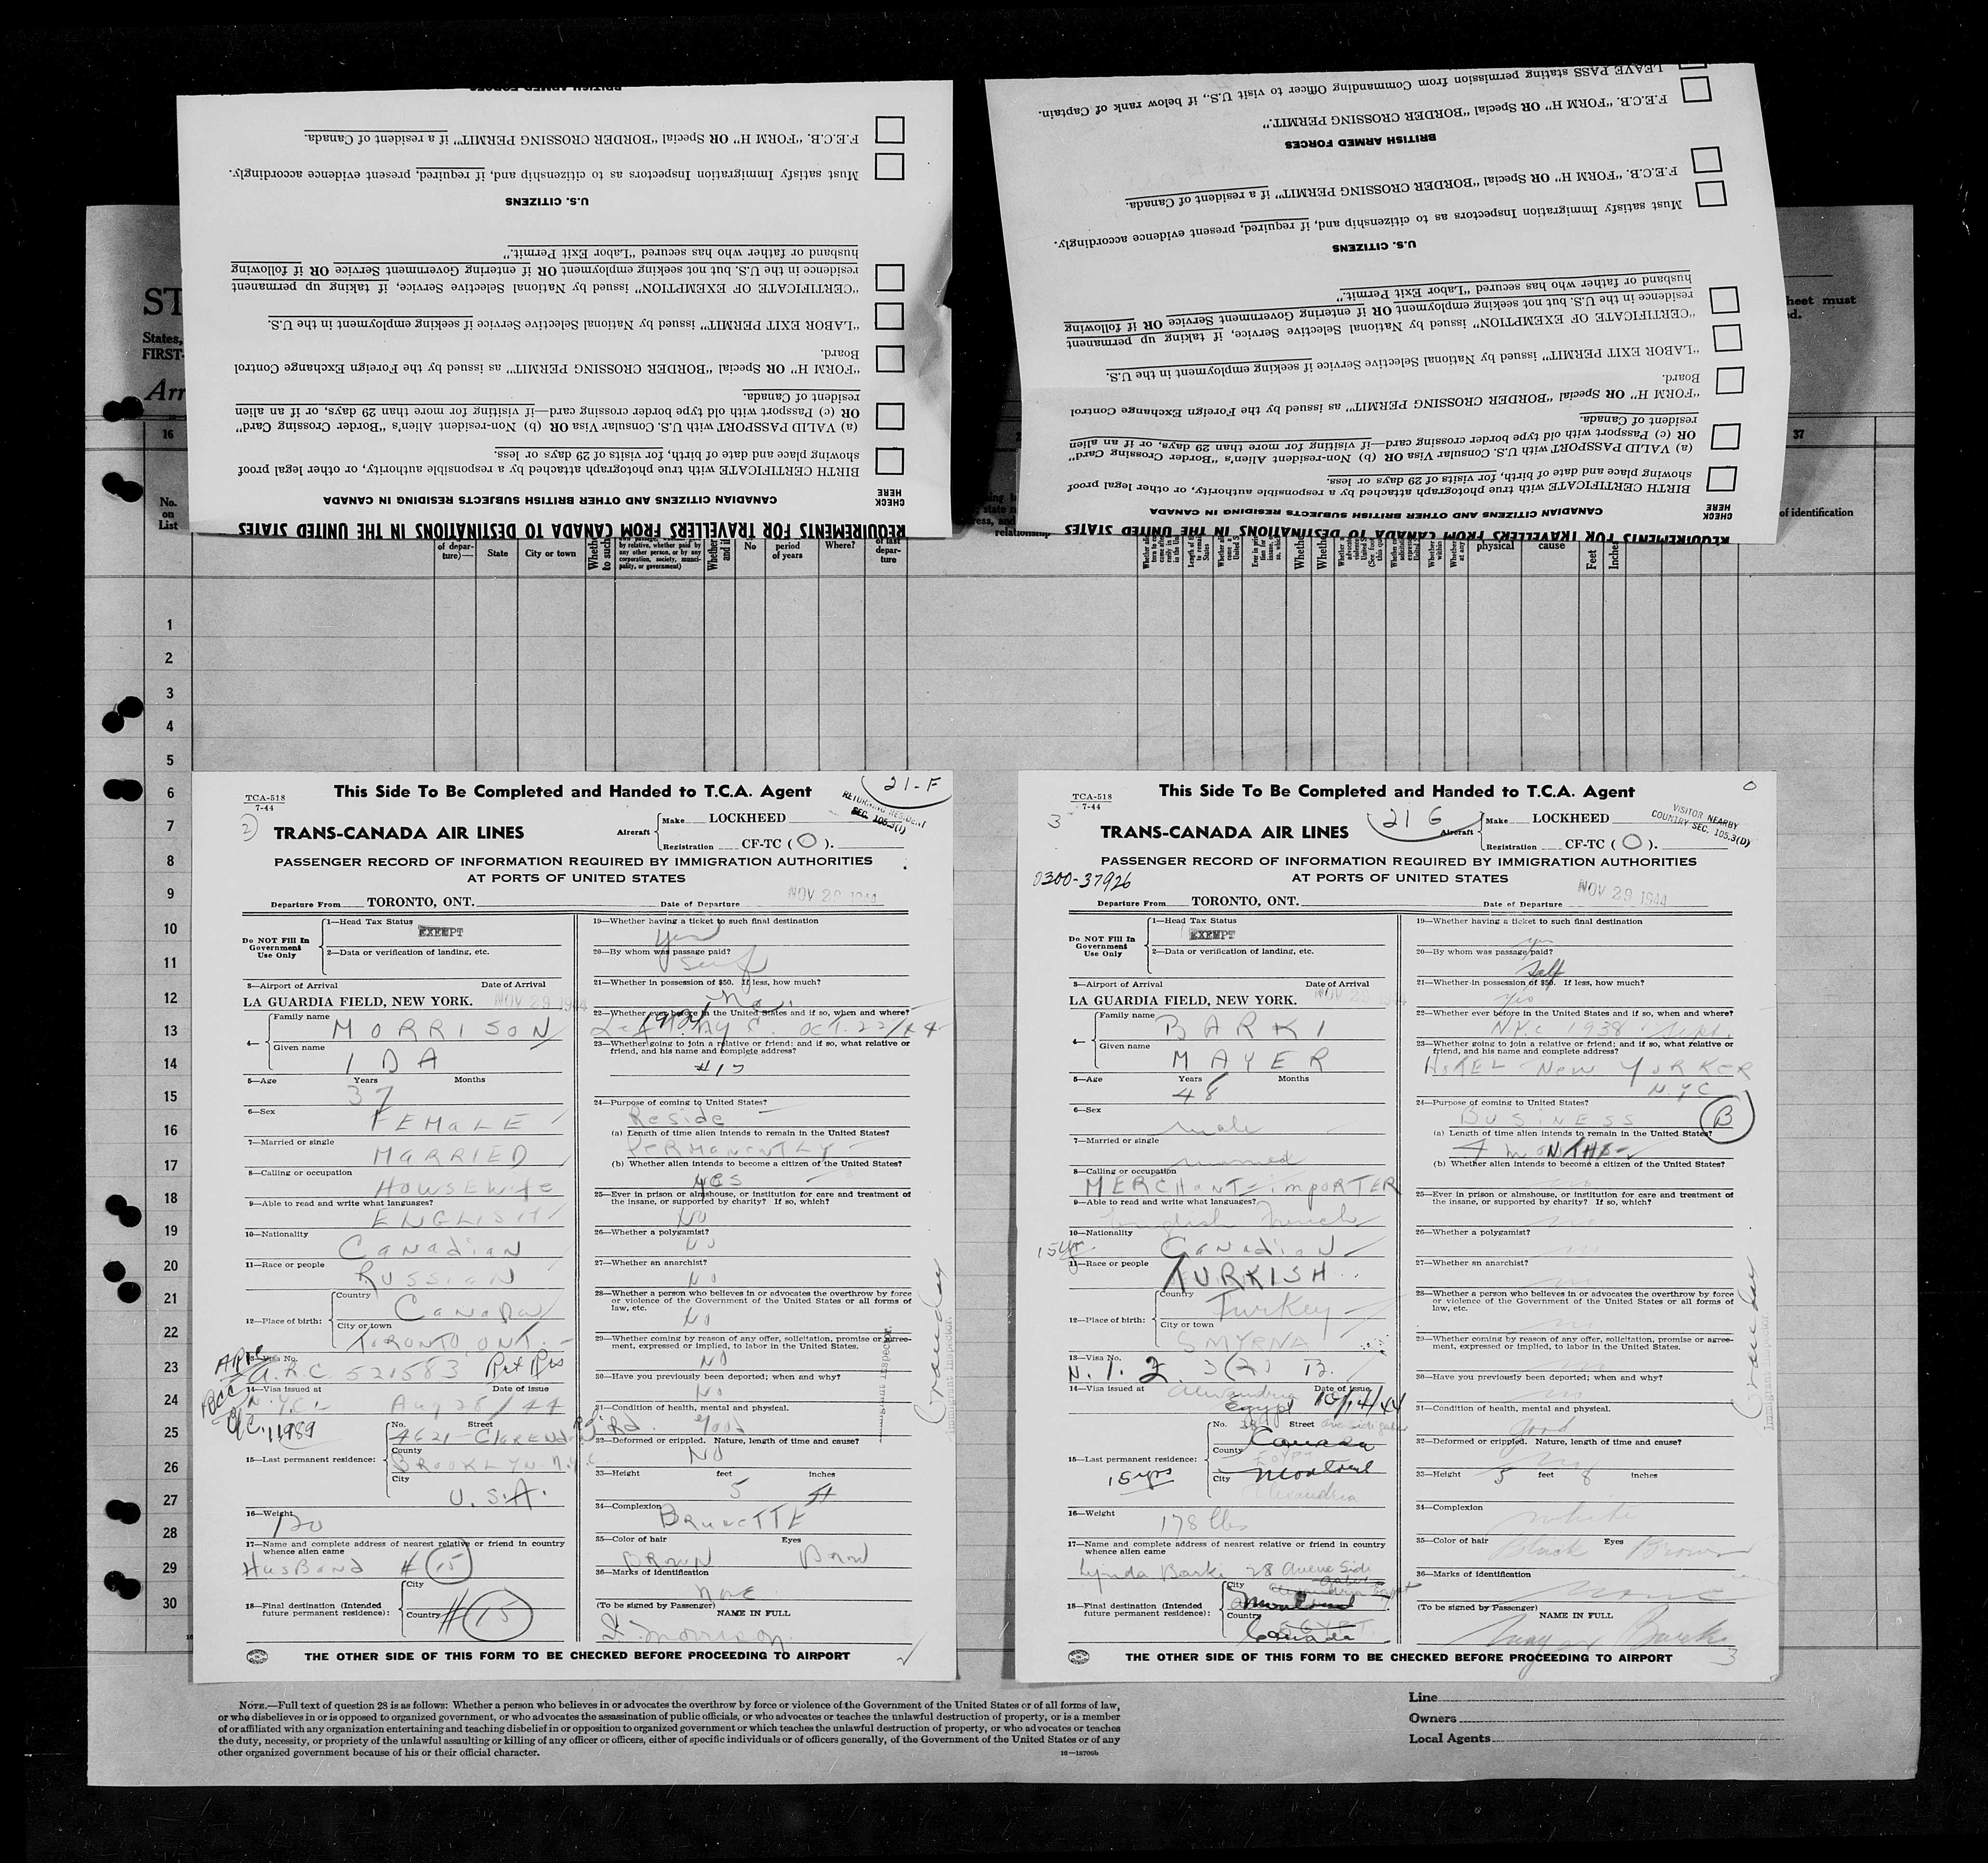 BRITISH ARMED FORCES
F.E.C.B. "FORM H" OR Special "BORDER CROSSING PERMIT" if a resident of Canada.
Must satisfy Immigration Inspectors as to citizenship and, if required, present evidence accordingly.
U.S. CITIZENS
husband or father who has secured "Labor Exit Permit."
residence in the U.S. but not seeking employment OR if entering Government Service OR if following
"CERTIFICATE OF EXEMPTION" issued by National Selective Service, if taking up permanent
"LABOR EXIT PERMIT" issued by National Selective Service if seeking employment in the U.S.
Board.
"FORM H" OR Special "BORDER CROSSING PERMIT" as issued by the Foreign Exchange Control
resident of Canada.
OR (c) Passport with old type border crossing card—if visiting for more than 29 days, or if an alien
(a) VALID PASSPORT with U.S. Consular Visa OR (b) Non-resident Alien's "Border Crossing Card"
showing place and date of birth, for visits of 29 days or less.
BIRTH CERTIFICATE with true photograph attached by a responsible authority, or other legal proof
CHECK HERE
CANADIAN CITIZENS AND OTHER BRITISH SUBJECTS RESIDING IN CANADA
REQUIREMENTS FOR TRAVELLERS FROM CANADA TO DESTINATIONS IN THE UNITED STATES
LEAVE PASS stating permission from Commanding Officer to visit U.S., if below rank of Captain.
F.E.C.B. "FORM H" OR Special "BORDER CROSSING PERMIT."
BRITISH ARMED FORCES
F.E.C.B. "FORM H" OR Special "BORDER CROSSING PERMIT" if a resident of Canada.
Must satisfy Immigration Inspectors as to citizenship and, if required, present evidence accordingly.
U.S. CITIZENS
husband or father who has secured "Labor Exit Permit."
residence in the U.S. but not seeking employment OR if entering Government Service OR if following
"CERTIFICATE OF EXEMPTION" issued by National Selective Service, if taking up permanent
"LABOR EXIT PERMIT" issued by National Selective Service if seeking employment in the U.S.
Board.
"FORM H" OR Special "BORDER CROSSING PERMIT" as issued by the Foreign Exchange Control
resident of Canada.
OR (c) Passport with old type border crossing card—if visiting for more than 29 days, or if an alien
(a) VALID PASSPORT with U.S. Consular Visa OR (b) Non-resident Alien's "Border Crossing Card"
showing place and date of birth, for visits of 29 days or less.
BIRTH CERTIFICATE with true photograph attached by a responsible authority, or other legal proof
CHECK HERE
CANADIAN CITIZENS AND OTHER BRITISH SUBJECTS RESIDING IN CANADA
REQUIREMENTS FOR TRAVELLERS FROM CANADA TO DESTINATIONS IN THE UNITED STATES
ST
States,
FIRST-
Arr
heet must
16
37
No.
on
List
of identification
relationship
of depar-
ture)—
State
City or town
by relative, whether paid by
any other person, or by any
corporation, society, munici-
pality, or government)
No
period
of years
Where?
of last
depar-
ture
physical
cause
Feet
Inches
1
2
3
4
5
6
7
8
9
10
11
12
13
14
15
16
17
18
19
20
21
22
23
24
25
26
27
28
29
30
This Side To Be Completed and Handed to T.C.A. Agent
21-F
TCA-518
7-44
RETURNING RESIDENT
SEC. 105.3(1)
2
TRANS-CANADA AIR LINES
Aircraft
Make LOCKHEED
Registration CF-TC ( O ).
PASSENGER RECORD OF INFORMATION REQUIRED BY IMMIGRATION AUTHORITIES
AT PORTS OF UNITED STATES
NOV 29 1944
Departure From TORONTO, ONT. Date of Departure
Do NOT Fill In
Government
Use Only
1—Head Tax Status
EXEMPT
2—Data or verification of landing, etc.
3—Airport of Arrival Date of Arrival
LA GUARDIA FIELD, NEW YORK. NOV 29 1944
4— Family name MORRISON
Given name IDA
5—Age Years Months
37
6—Sex FEMALE
7—Married or single MARRIED
8—Calling or occupation Housewife
9—Able to read and write what languages? ENGLISH
10—Nationality Canadian
11—Race or people RUSSIAN
12—Place of birth: Country Canada
City or town TORONTO, ONT.
13—Visa No. A.R.C. 521583
14—Visa issued at Date of issue
N.Y.C. Aug 28/44
15—Last permanent residence: No. Street
4621-Clarendon Rd.
County BROOKLYN N.Y.C.
City U.S.A.
16—Weight 120
17—Name and complete address of nearest relative or friend in country
whence alien came
Husband # 15
18—Final destination (Intended
future permanent residence):
City
Country # 15
19—Whether having a ticket to such final destination
Yes
20—By whom was passage paid?
Self
21—Whether in possession of $50. If less, how much?
No
22—Whether ever before in the United States and if so, when and where?
Oct. 22/44
23—Whether going to join a relative or friend; and if so, what relative or
friend, and his name and complete address?
24—Purpose of coming to United States?
Reside
(a) Length of time alien intends to remain in the United States?
PERMANENTLY
(b) Whether alien intends to become a citizen of the United States?
yes
25—Ever in prison or almshouse, or institution for care and treatment of
the insane, or supported by charity? If so, which?
No
26—Whether a polygamist?
No
27—Whether an anarchist?
No
28—Whether a person who believes in or advocates the overthrow by force
or violence of the Government of the United States or all forms of
law, etc.
No
29—Whether coming by reason of any offer, solicitation, promise or agree-
ment, expressed or implied, to labor in the United States.
No
30—Have you previously been deported; when and why?
No
31—Condition of health, mental and physical.
good
32—Deformed or crippled. Nature, length of time and cause?
No
33—Height feet inches
5
34—Complexion BRUNETTE
35—Color of hair Eyes
Brown Brown
36—Marks of identification
None
(To be signed by Passenger) NAME IN FULL
I. Morrison
THE OTHER SIDE OF THIS FORM TO BE CHECKED BEFORE PROCEEDING TO AIRPORT
This Side To Be Completed and Handed to T.C.A. Agent
TCA-518
7-44
21 G
VISITOR NEARBY
COUNTRY SEC. 105.3(D)
3
TRANS-CANADA AIR LINES
Aircraft
Make LOCKHEED
Registration CF-TC ( O ).
PASSENGER RECORD OF INFORMATION REQUIRED BY IMMIGRATION AUTHORITIES
AT PORTS OF UNITED STATES
0300-37926
NOV 29 1944
Departure From TORONTO, ONT. Date of Departure
Do NOT Fill In
Government
Use Only
1—Head Tax Status
EXEMPT
2—Data or verification of landing, etc.
3—Airport of Arrival Date of Arrival
LA GUARDIA FIELD, NEW YORK.
4— Family name BARKI
Given name MAYER
5—Age Years Months
48
6—Sex male
7—Married or single married
8—Calling or occupation MERCHANT-IMPORTER
9—Able to read and write what languages? English French
10—Nationality Canadian
11—Race or people TURKISH
12—Place of birth: Country Turkey
City or town SMYRNA
13—Visa No. 3(2)
14—Visa issued at Date of issue
Alexandria Egypt 10/14/44
15—Last permanent residence: No. Street
County Canada
City Montreal
Alexandria
15 yrs
16—Weight 178 lbs
17—Name and complete address of nearest relative or friend in country
whence alien came
Lynda Barki 28 Avenue Sidi
18—Final destination (Intended
future permanent residence):
City Montreal
Country Canada
19—Whether having a ticket to such final destination
yes
20—By whom was passage paid?
Self
21—Whether in possession of $50. If less, how much?
yes
22—Whether ever before in the United States and if so, when and where?
N.Y.C 1938 Sept.
23—Whether going to join a relative or friend; and if so, what relative or
friend, and his name and complete address?
HOTEL New YORKER
N.Y.C
24—Purpose of coming to United States?
BUSINESS B
(a) Length of time alien intends to remain in the United States?
4 MONTHS
(b) Whether alien intends to become a citizen of the United States?
no
25—Ever in prison or almshouse, or institution for care and treatment of
the insane, or supported by charity? If so, which?
no
26—Whether a polygamist?
no
27—Whether an anarchist?
no
28—Whether a person who believes in or advocates the overthrow by force
or violence of the Government of the United States or all forms of
law, etc.
no
29—Whether coming by reason of any offer, solicitation, promise or agree-
ment, expressed or implied, to labor in the United States.
no
30—Have you previously been deported; when and why?
no
31—Condition of health, mental and physical.
good
32—Deformed or crippled. Nature, length of time and cause?
no
33—Height 5 feet 8 inches
34—Complexion white
35—Color of hair Black Eyes Brown
36—Marks of identification
none
(To be signed by Passenger) NAME IN FULL
Mayer Barki
3
THE OTHER SIDE OF THIS FORM TO BE CHECKED BEFORE PROCEEDING TO AIRPORT
NOTE.—Full text of question 28 is as follows: Whether a person who believes in or advocates the overthrow by force or violence of the Government of the United States or of all forms of law,
or who disbelieves in or is opposed to organized government, or who advocates the assassination of public officials, or who advocates or teaches the unlawful destruction of property, or is a member
of or affiliated with any organization entertaining and teaching disbelief in or opposition to organized government or which teaches the unlawful destruction of property, or who advocates or teaches
the duty, necessity, or propriety of the unlawful assaulting or killing of any officer or officers, either of specific individuals or of officers generally, of the Government of the United States or of any
other organized government because of his or their official character.
16—18706b
Line
Owners
Local Agents